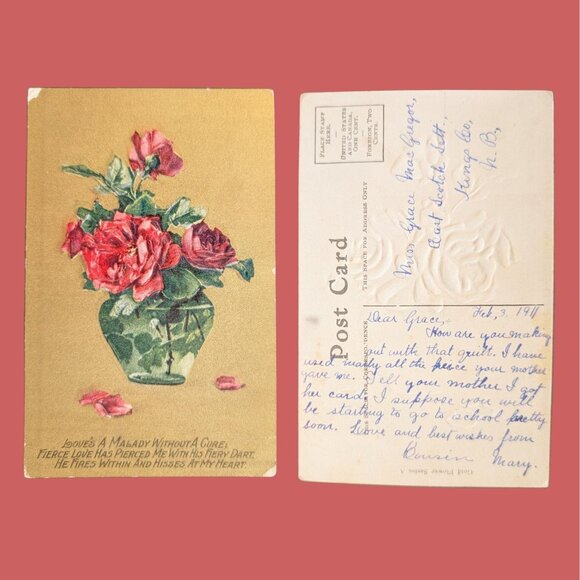 LOOVE'S A MALADY WITHOUT A CURE;
FIERCE LOVE HAS PIERCED ME WITH HIS FIERY DART,
HE FIRES WITHIN AND HISSES AT MY HEART.
PLACE STAMP
HERE.
UNITED STATES
AND CANADA,
ONE CENT.
FOREIGN, TWO
CENTS.
Post Card
THIS SPACE FOR ADDRESS ONLY
THIS SPACE FOR CORRESPONDENCE
Miss Grace MacGregor,
Scotch Sett.,
Kings Co,
N. B,
Feb, 3, 1911
Dear Grace,-
How are you making
out with that quilt. I have
used nearly all the piece your mother
gave me. Tell your mother I got
her card. I suppose you will
be starting to go to school pretty
soon. Love and best wishes from
Cousin Mary.
Gold Flower Series A